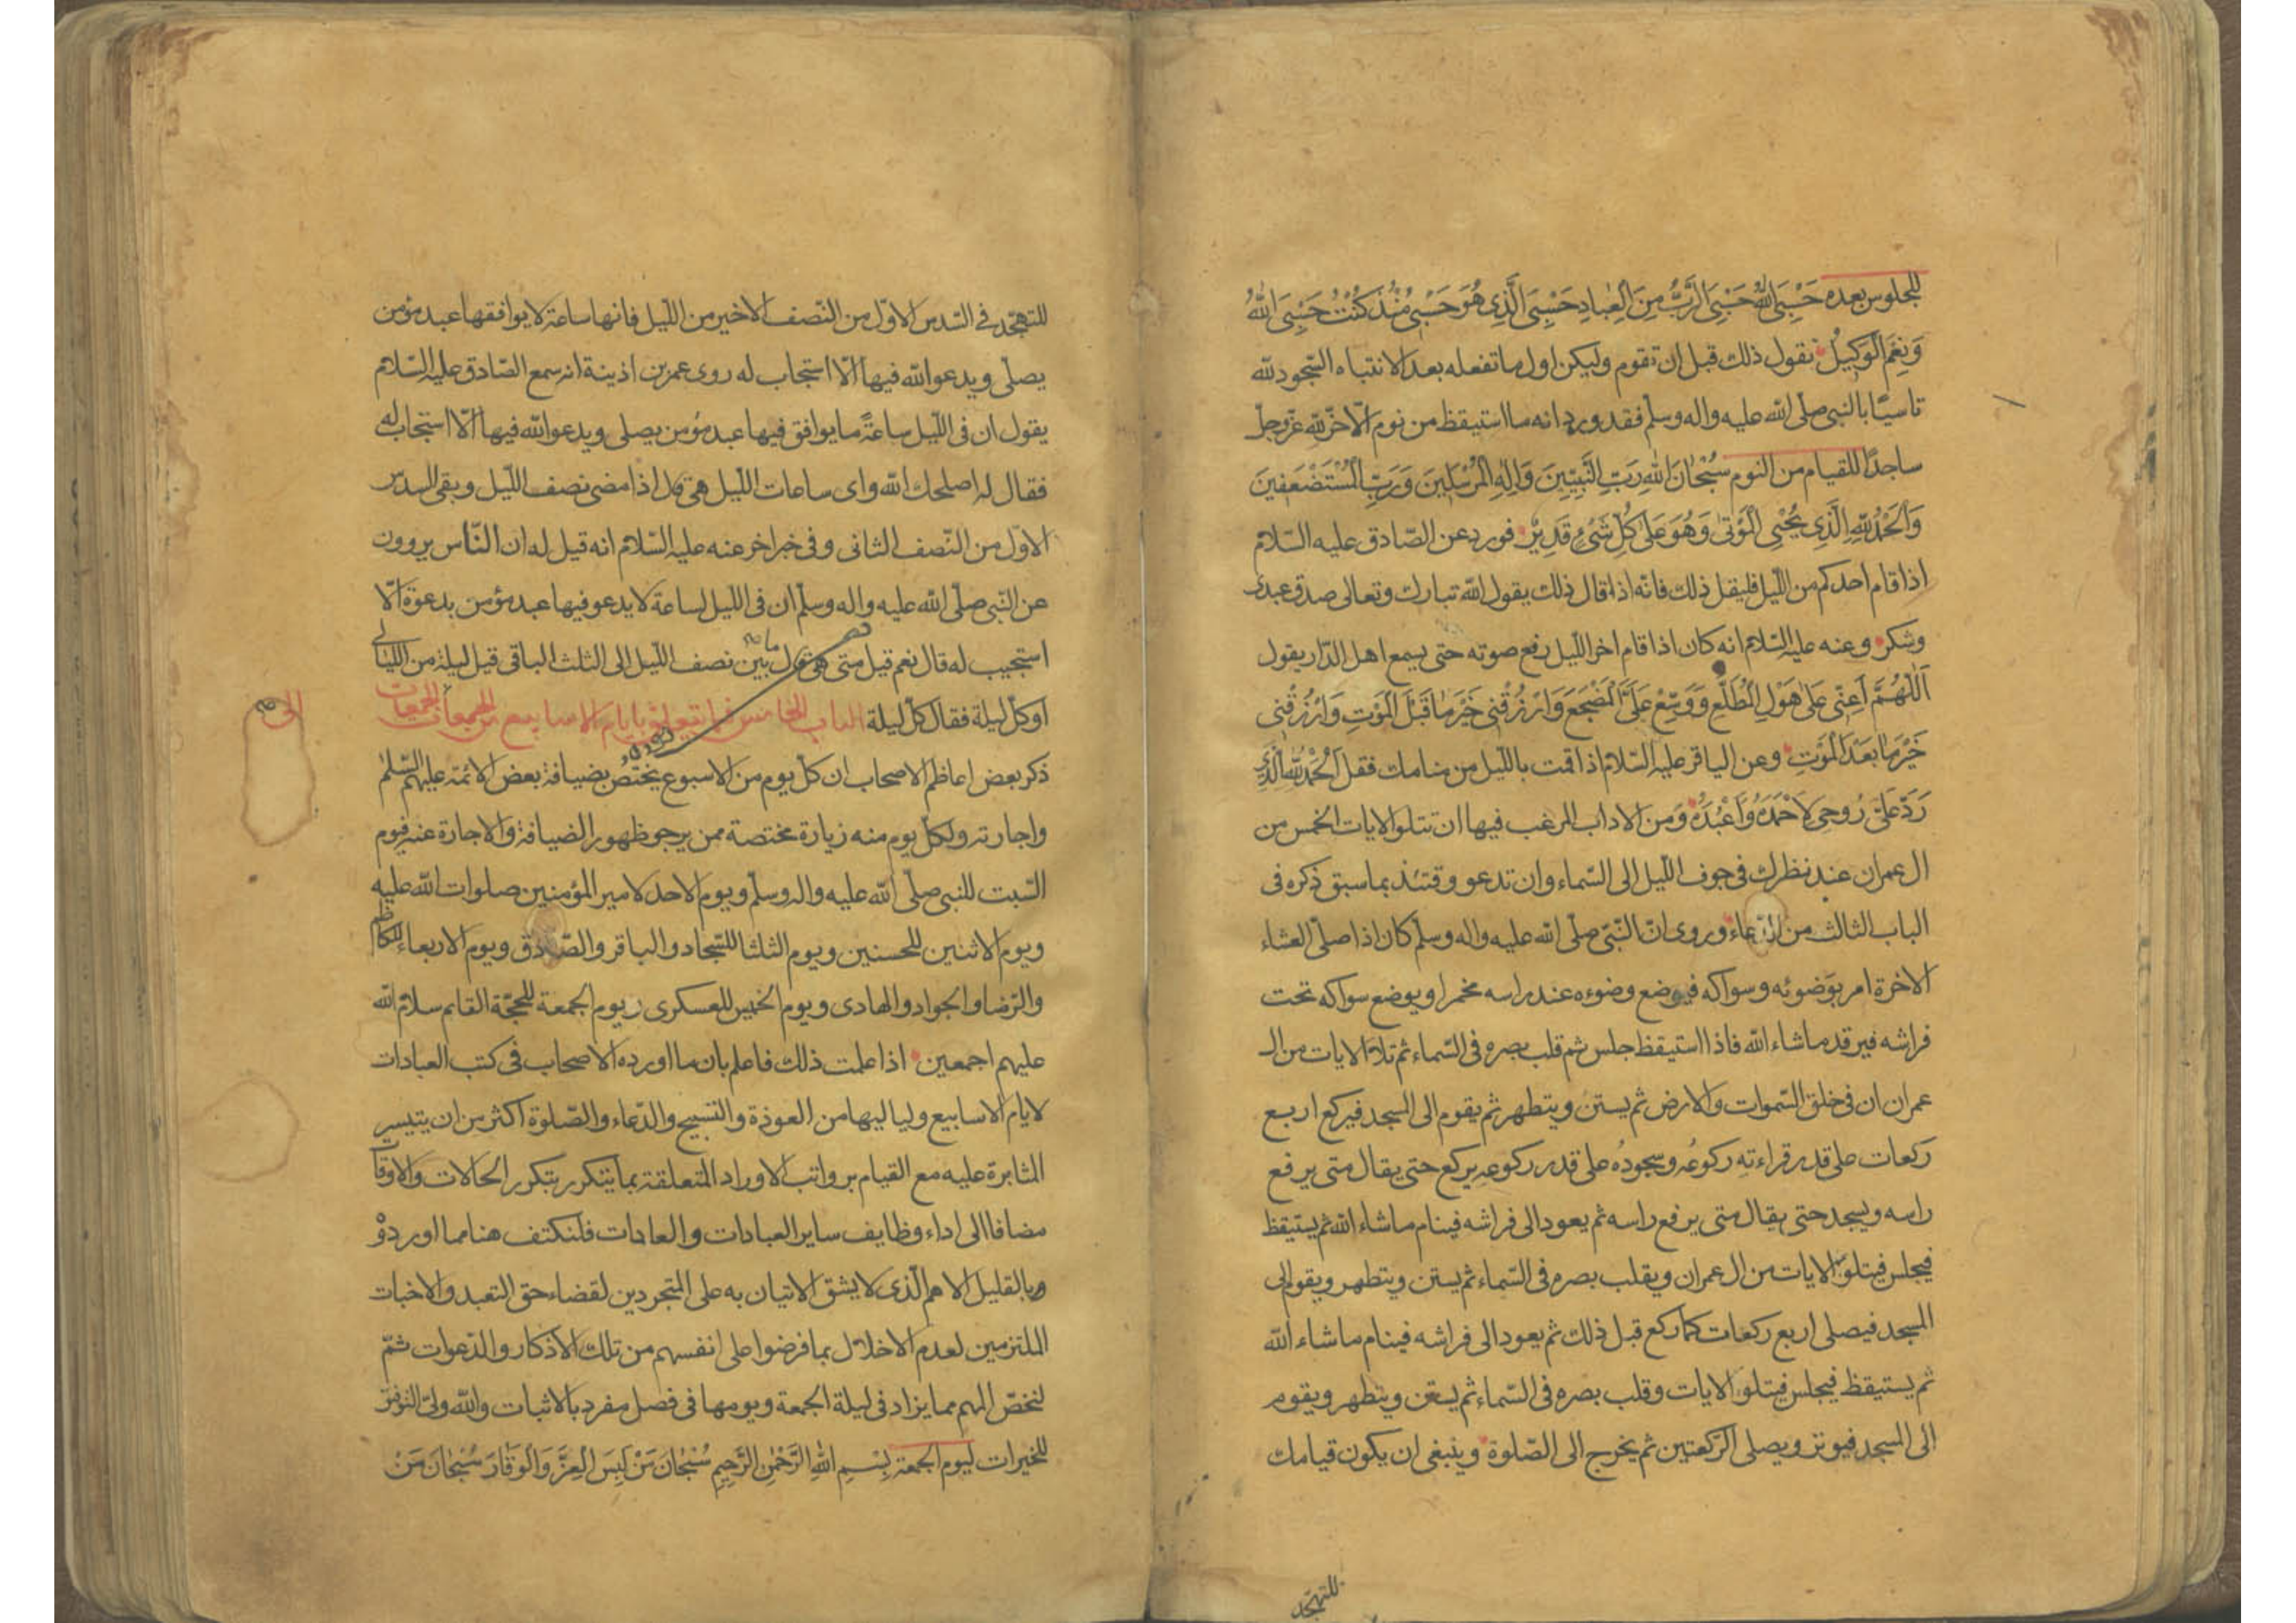 للجلوس بعده حَسْبِيَ اللّٰهُ حَسْبِيَ الرَّبُّ مِنَ الْعِبادِ حَسْبِيَ الَّذِي هُوَ حَسْبِي مُنْذُ كُنْتُ حَسْبِيَ اللّٰهُ
وَنِعْمَ الْوَكِيلُ تقول ذلك قبل ان تقوم وليكن اول ما تفعله بعد الانتباه السّجود لله
تاسيّا بالنبى صلّى الله عليه واله وسلّم فقد ورد انه ما استيقظ من نوم الّا خرّ لله عزّ وجلّ
ساجدًا للقيام من النوم سُبْحَانَ اللّٰهِ رَبِّ النَّبِيّينَ وَاِلٰهِ الْمُرْسَلِينَ وَرَبِّ الْمُسْتَضْعَفِينَ
وَالْحَمْدُ لِلّٰهِ الَّذِي يُحْيِي الْمَوْتىٰ وَهُوَ عَلىٰ كُلِّ شَيْءٍ قَدِيرٌ فورد عن الصّادق عليه السّلام
اذا قام احدكم من اللّيل فليقل ذلك فانّه اذا قال ذلك يقول الله تبارك وتعالى صدق عبدى
وشكر وعنه عليه السّلام انه كان اذا قام اخر اللّيل رفع صوته حتى يسمع اهل الدّار يقول
اَللّٰهُمَّ اَعِنِّي عَلىٰ هَوْلِ الْمُطَّلَعِ وَوَسِّعْ عَلَيَّ الْمَضْجَعَ وَارْزُقْنِي خَيْرَ مٰا قَبْلَ الْمَوْتِ وَارْزُقْنِي
خَيْرَ مٰا بَعْدَ الْمَوْتِ وعن الباقر عليه السّلام اذا قمت بالليل من منامك فقل الْحَمْدُ لِلّٰهِ الَّذِي
رَدَّ عَلَيَّ رُوحِي لِاَحْمَدَهُ وَاَعْبُدَهُ وَمن الاداب المرغب فيها ان تتلو الايات الخمس من
ال عمران عند نظرك فى جوف اللّيل الى السّماء وان تدعو وقتئذ بما سبق ذكره فى
الباب الثالث من الدّعاء وروى انّ النّبىّ صلّى الله عليه واله وسلّم كان اذا صلّى العشاء
الاخرة امر بوَضوئه وسواكه فيوضع وضوءه عند راسه مخمرا ويوضع سواكه تحت
فراشه فيرقد ما شاء الله فاذا استيقظ جلس ثم قلب بصره فى السّماء ثم تلا الايات من ال
عمران ان فى خلق السّموات والارض ثم يستن ويتطهر ثم يقوم الى المسجد فيركع اربع
ركعات على قدر قراءتهِ ركوعُه وسجودُه على قدر ركوعهِ يركع حتى يقال متى يرفع
راسه ويسجد حتى يقال متى يرفع راسه ثم يعود الى فراشه فينام ما شاء الله ثم يستيقظ
فيجلس فيتلو الايات من ال عمران ويقلب بصره فى السّماء ثم يستن ويتطهر ويقوم الى
المسجد فيصلى اربع ركعات كما ركع قبل ذلك ثم يعود الى فراشه فينام ما شاء الله
ثم يستيقظ فيجلس فيتلو الايات وقلب بصره فى السّماء ثم يستن ويتطهر ويقوم
الى المسجد فيوتر ويصلى الرّكعتين ثم يخرج الى الصّلوة وينبغى ان يكون قيامك
للتهجّد
للتهجّد فى السّدس الاوّل من النّصف الاخير من اللّيل فانها ساعة لا يوافقها عبد مؤمن
يصلّى ويدعو الله فيها الّا استجاب له روى عمر بن اذينة انه سمع الصّادق عليه السّلام
يقول ان فى اللّيل ساعةً ما يوافق فيها عبد مؤمن يصلى ويدعو الله فيها الّا استجاب له
فقال له اصلحك الله واى ساعات اللّيل هى قال اذا مضى نصف اللّيل وبقى السدس
الاوّل من النّصف الثانى وفى خبر اخر عنه عليه السّلام انه قيل له ان النّاس يروون
عن النّبى صلّى الله عليه واله وسلّم ان فى اللّيل لساعة لا يدعو فيها عبد مؤمن بدعوة الّا
استجيب له قال نعم قيل متى هى قال ما بين نصف اللّيل الى الثلث الباقى قيل ليلة من الليالى
او كلّ ليلة فقال كلّ ليلة الباب الخامس فيما يتعلق بايام الاسابيع من الجمعات الى الجمعات
ذكر بعض اعاظم الاصحاب ان كلّ يوم من الاسبوع يختصّ بضيافة بعض الائمّة عليهم السّلم
واجارته ولكلّ يوم منه زيارة مختصة ممن يرجو ظهور الضيافة والاجارة عنه فيوم
السّبت للنبى صلّى الله عليه واله وسلّم ويوم الاحد لامير المؤمنين صلوات الله عليه
ويوم الاثنين للحسنين ويوم الثلثا للسّجاد والباقر والصّادق ويوم الاربعاء للكاظم
والرّضا والجواد والهادى ويوم الخميس للعسكرى ويوم الجمعة للحجّة القايم سلام الله
عليهم اجمعين اذا علمت ذلك فاعلم بان ما اورده الاصحاب فى كتب العبادات
لايام الاسابيع ولياليها من العوذة والتسبيح والدّعاء والصّلوة اكثر من ان يتيسر
المثابرة عليه مع القيام برواتب الاوراد المتعلقة بما يتكرر بتكرر الحالات والاوقات
مضافا الى اداء وظايف ساير العبادات والعادات فلنكتف هنا مما اوردوْ
وبالقليل الاهم الّذى لا يشق الاتيان به على المتجردين لقضاء حق التعبد والاخبات
الملتزمين لعدم الاخلال بما فرضوا على انفسهم من تلك الاذكار والدّعوات ثمّ
لنخصّ المهم مما يزاد فى ليلة الجمعة ويومها فى فصل مفرد بالاثبات والله ولىّ التوفيق
للخيرات ليوم الجمعة بِسْمِ اللّٰهِ الرَّحْمٰنِ الرَّحِيمِ سُبْحٰانَ مَنْ لَبِسَ الْعِزَّ وَالْوَقٰارَ سُبْحٰانَ مَنْ